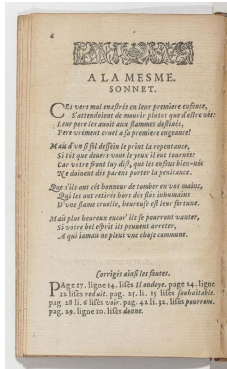 6
A LA MESME.
SONNET.
CEs vers mal enastrés en leur premiere enfence,
S'attendoient de mourir plutos que d'estre nés:
Leur pere les avoit aux flammes destinés,
Pere vrement cruel a sa premiere engeance!
Mais d'vn si fil dessein le print la repentance,
Si tôt que devers vous le yeux il eut tournés:
Car votre front luy dist, que les enfans bien-nés
Ne doivent dis parens porter la penitance.
Que s'ils ont cét honneur de tomber en vos mains,
Qui les ont retirés hors dis flos inhumains
D'vne flame cruelle, heureuse est leur fortune.
Mais plus heureux encor' ils se pourront vanter,
Si votre bel esprit ils peuvent arreter,
A qui iamais ne pleut vne chose commune.
Corrigés ainsi les fautes.
PAge 17. ligne 14. lisés Il ondoye. page 24. ligne
12 lisés reduit. pag. 25. li. 15 lisés souhaitable.
pag 28 li. 6 lisés voir. pag. 42 li. 32. lisés pourront.
pag. 29. ligne 10. lisés donne.